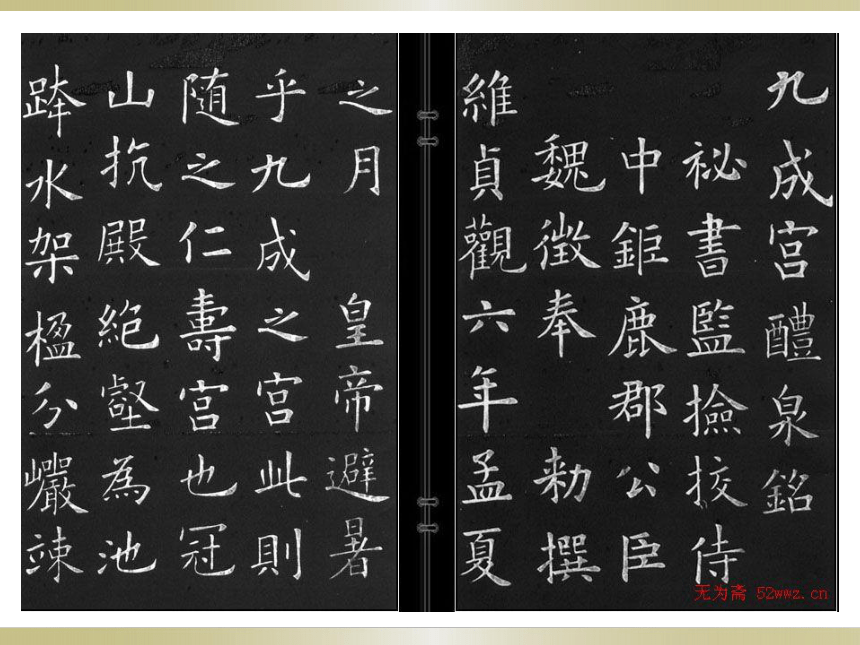 九成宮醴泉銘
祕書監撿挍侍
中鉅鹿郡公臣
魏徵奉 勅撰
維貞觀六年孟夏
之月 皇帝避暑
乎九成之宮此則
随之仁壽宮也冠
山抗殿絶壑為池
跨水架楹分巖竦
无为斋 52wwz.cn